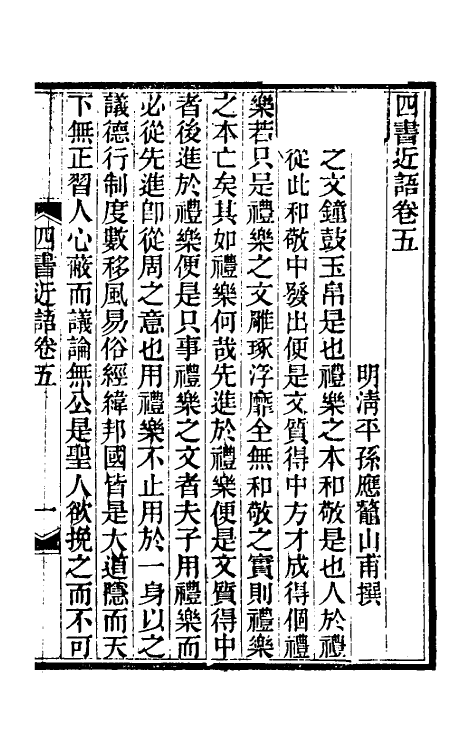 四書近語卷五
明淸平孫應鼇山甫撰
之文鐘鼓玉帛是也禮樂之本和敬是也人於禮
從此和敬中發出便是文質得中方才成得個禮
樂若只是禮樂之文雕琢浮靡全無和敬之實則禮樂
之本亡矣其如禮樂何哉先進於禮樂便是文質得中
者後進於禮樂便是只事禮樂之文者夫子用禮樂而
必從先進卽從周之意也用禮樂不止用於一身以之
議德行制度數移風易俗經緯邦國皆是大道隱而天
下無正習人心蔽而議論無公是聖人欲挽之而不可
四書近語卷五
一